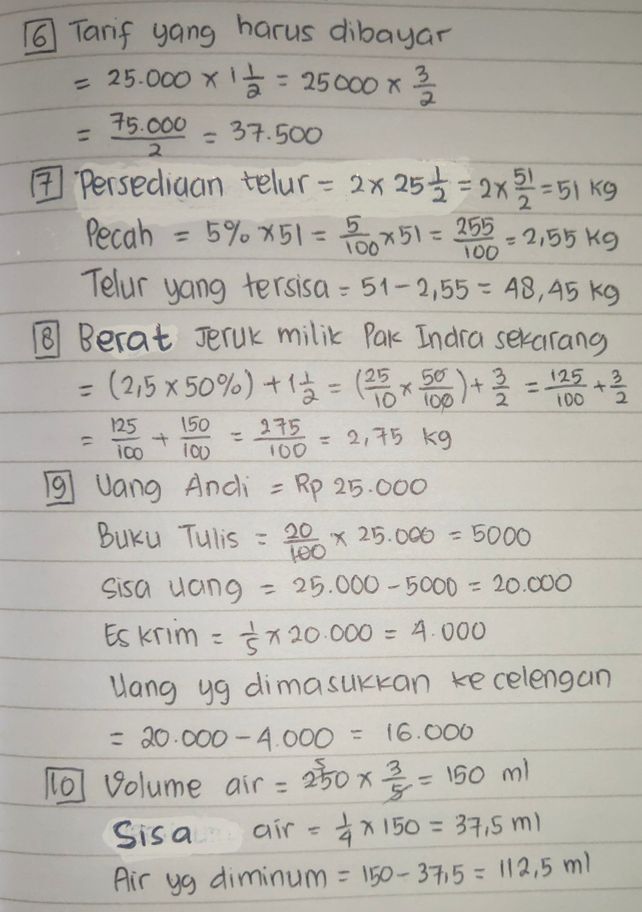 6 Tarif yang harus dibayar
= 25.000 x 1 1/2 = 25000 x 3/2
= 75.000/2 = 37.500
7 Persediaan telur = 2 x 25 1/2 = 2 x 51/2 = 51 kg
Pecah = 5% x 51 = 5/100 x 51 = 255/100 = 2,55 kg
Telur yang tersisa = 51 - 2,55 = 48,45 kg
8 Berat Jeruk milik Pak Indra sekarang
= (2,5 x 50%) + 1 1/2 = (25/10 x 50/100) + 3/2 = 125/100 + 3/2
= 125/100 + 150/100 = 275/100 = 2,75 kg
9 Uang Andi = Rp 25.000
Buku Tulis = 20/100 x 25.000 = 5000
Sisa uang = 25.000 - 5000 = 20.000
Es krim = 1/5 x 20.000 = 4.000
Uang yg dimasukkan ke celengan
= 20.000 - 4.000 = 16.000
10 Volume air = 250 x 3/5 = 150 ml
Sisa air = 1/4 x 150 = 37,5 ml
Air yg diminum = 150 - 37,5 = 112,5 ml